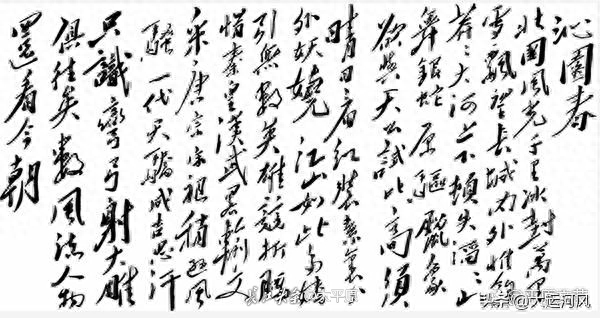 沁園春
北國風光千里冰封萬里
雪飄望長城内外惟餘
莽々大河上下頓失滔々山
舞銀蛇原驅臘象
欲與天公試比高須
晴日看紅裝素裹分
外妖嬈江山如此多嬌
引無數英雄競折腰
惜秦皇漢武略輸文
采唐宗宋祖稍遜風
騷一代天驕成吉思汗
只識彎弓射大雕
俱往矣數風流人物
還看今朝
头条@天运河风